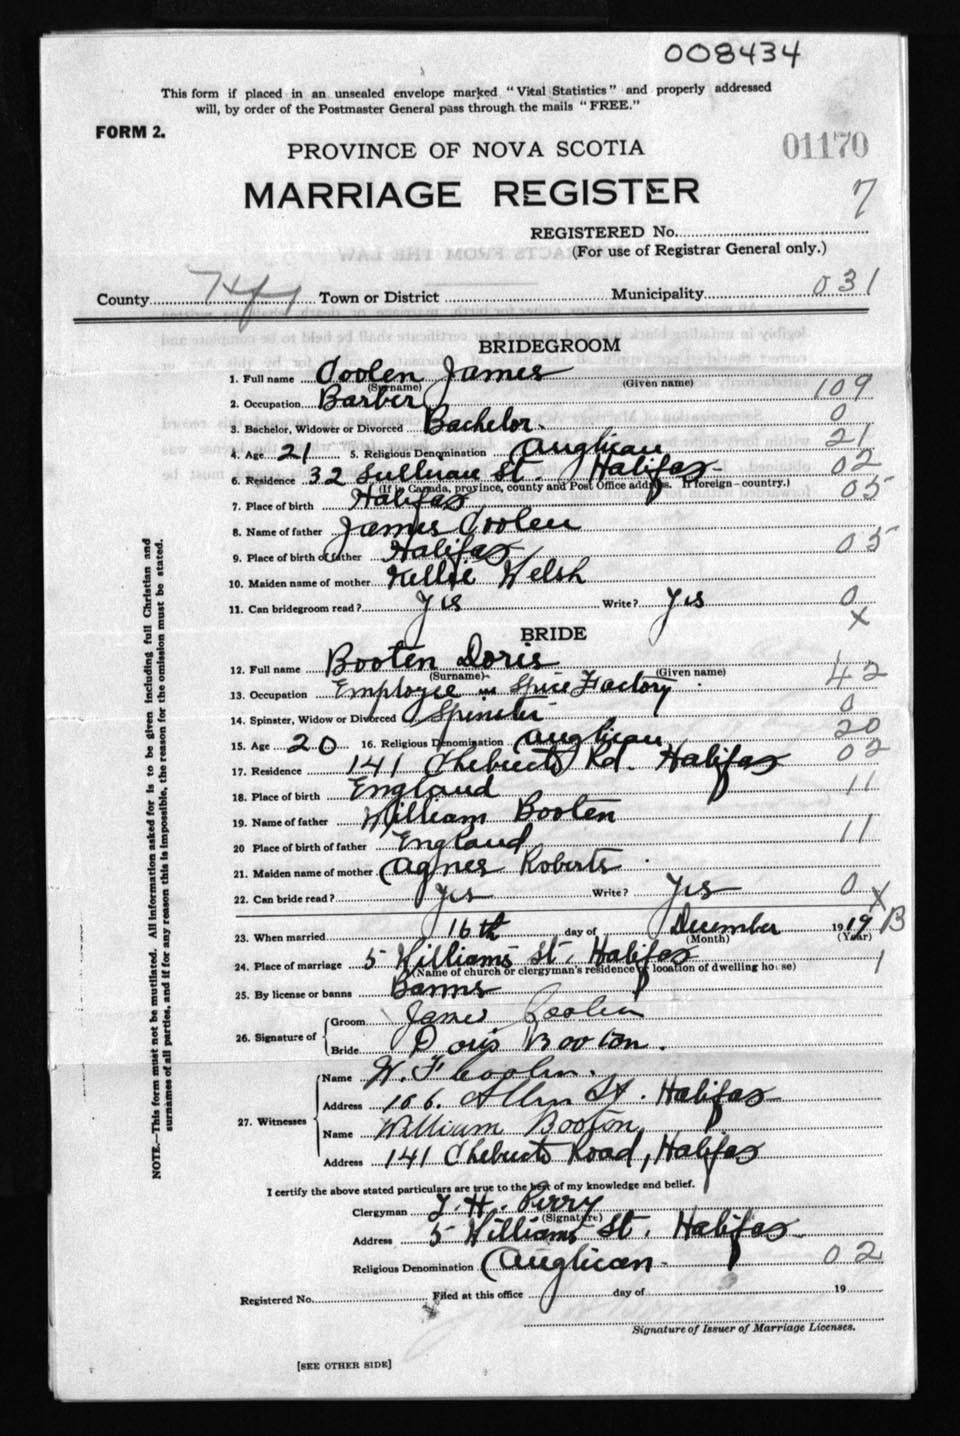 008434
This form if placed in an unsealed envelope marked "Vital Statistics" and properly addressed
will, by order of the Postmaster General pass through the mails "FREE."
FORM 2.
PROVINCE OF NOVA SCOTIA
01170
MARRIAGE REGISTER
7
REGISTERED No.
(For use of Registrar General only.)
County Hfx Town or District Municipality 031
BRIDEGROOM
1. Full name Coolen James
(Surname) (Given name)
109
2. Occupation Barber
3. Bachelor, Widower or Divorced Bachelor. 0
4. Age 21 5. Religious Denomination Anglican 21
6. Residence 32 Sullivan St. Halifax 02
(If in Canada, province, county and Post Office address. If foreign - country.)
7. Place of birth Halifax 05
8. Name of father James Coolen
9. Place of birth of father Halifax 05
10. Maiden name of mother Nellie Welsh
11. Can bridegroom read? Yes Write? Yes 0
X
BRIDE
12. Full name Booten Doris
(Surname) (Given name)
13. Occupation Employee in Spice Factory 42
14. Spinster, Widow or Divorced Spinster 0
15. Age 20 16. Religious Denomination Anglican 20
17. Residence 141 Chebucto Rd. Halifax 02
18. Place of birth England 11
19. Name of father William Booten
20 Place of birth of father England 11
21. Maiden name of mother Agnes Roberts
22. Can bride read? Yes Write? Yes 0
X
23. When married 16th day of December 1919 B
(Month) (Year)
24. Place of marriage 5 Williams St. Halifax 1
(Name of church or clergyman's residence or location of dwelling house)
25. By license or banns Banns
26. Signature of
Groom James Coolen
Bride Doris Booton.
27. Witnesses
Name W. F Coolen.
Address 106. Allen St. Halifax
Name William Booton
Address 141 Chebucto Road, Halifax
I certify the above stated particulars are true to the best of my knowledge and belief.
Clergyman T. H. Perry
(Signature)
Address 5 Williams St. Halifax
Religious Denomination Anglican 02
Registered No. Filed at this office day of 19
Signature of Issuer of Marriage Licenses.
[SEE OTHER SIDE]
NOTE.—This form must not be mutilated. All information asked for is to be given including full Christian and
surnames of all parties, and if for any reason this is impossible, the reason for the omission must be stated.